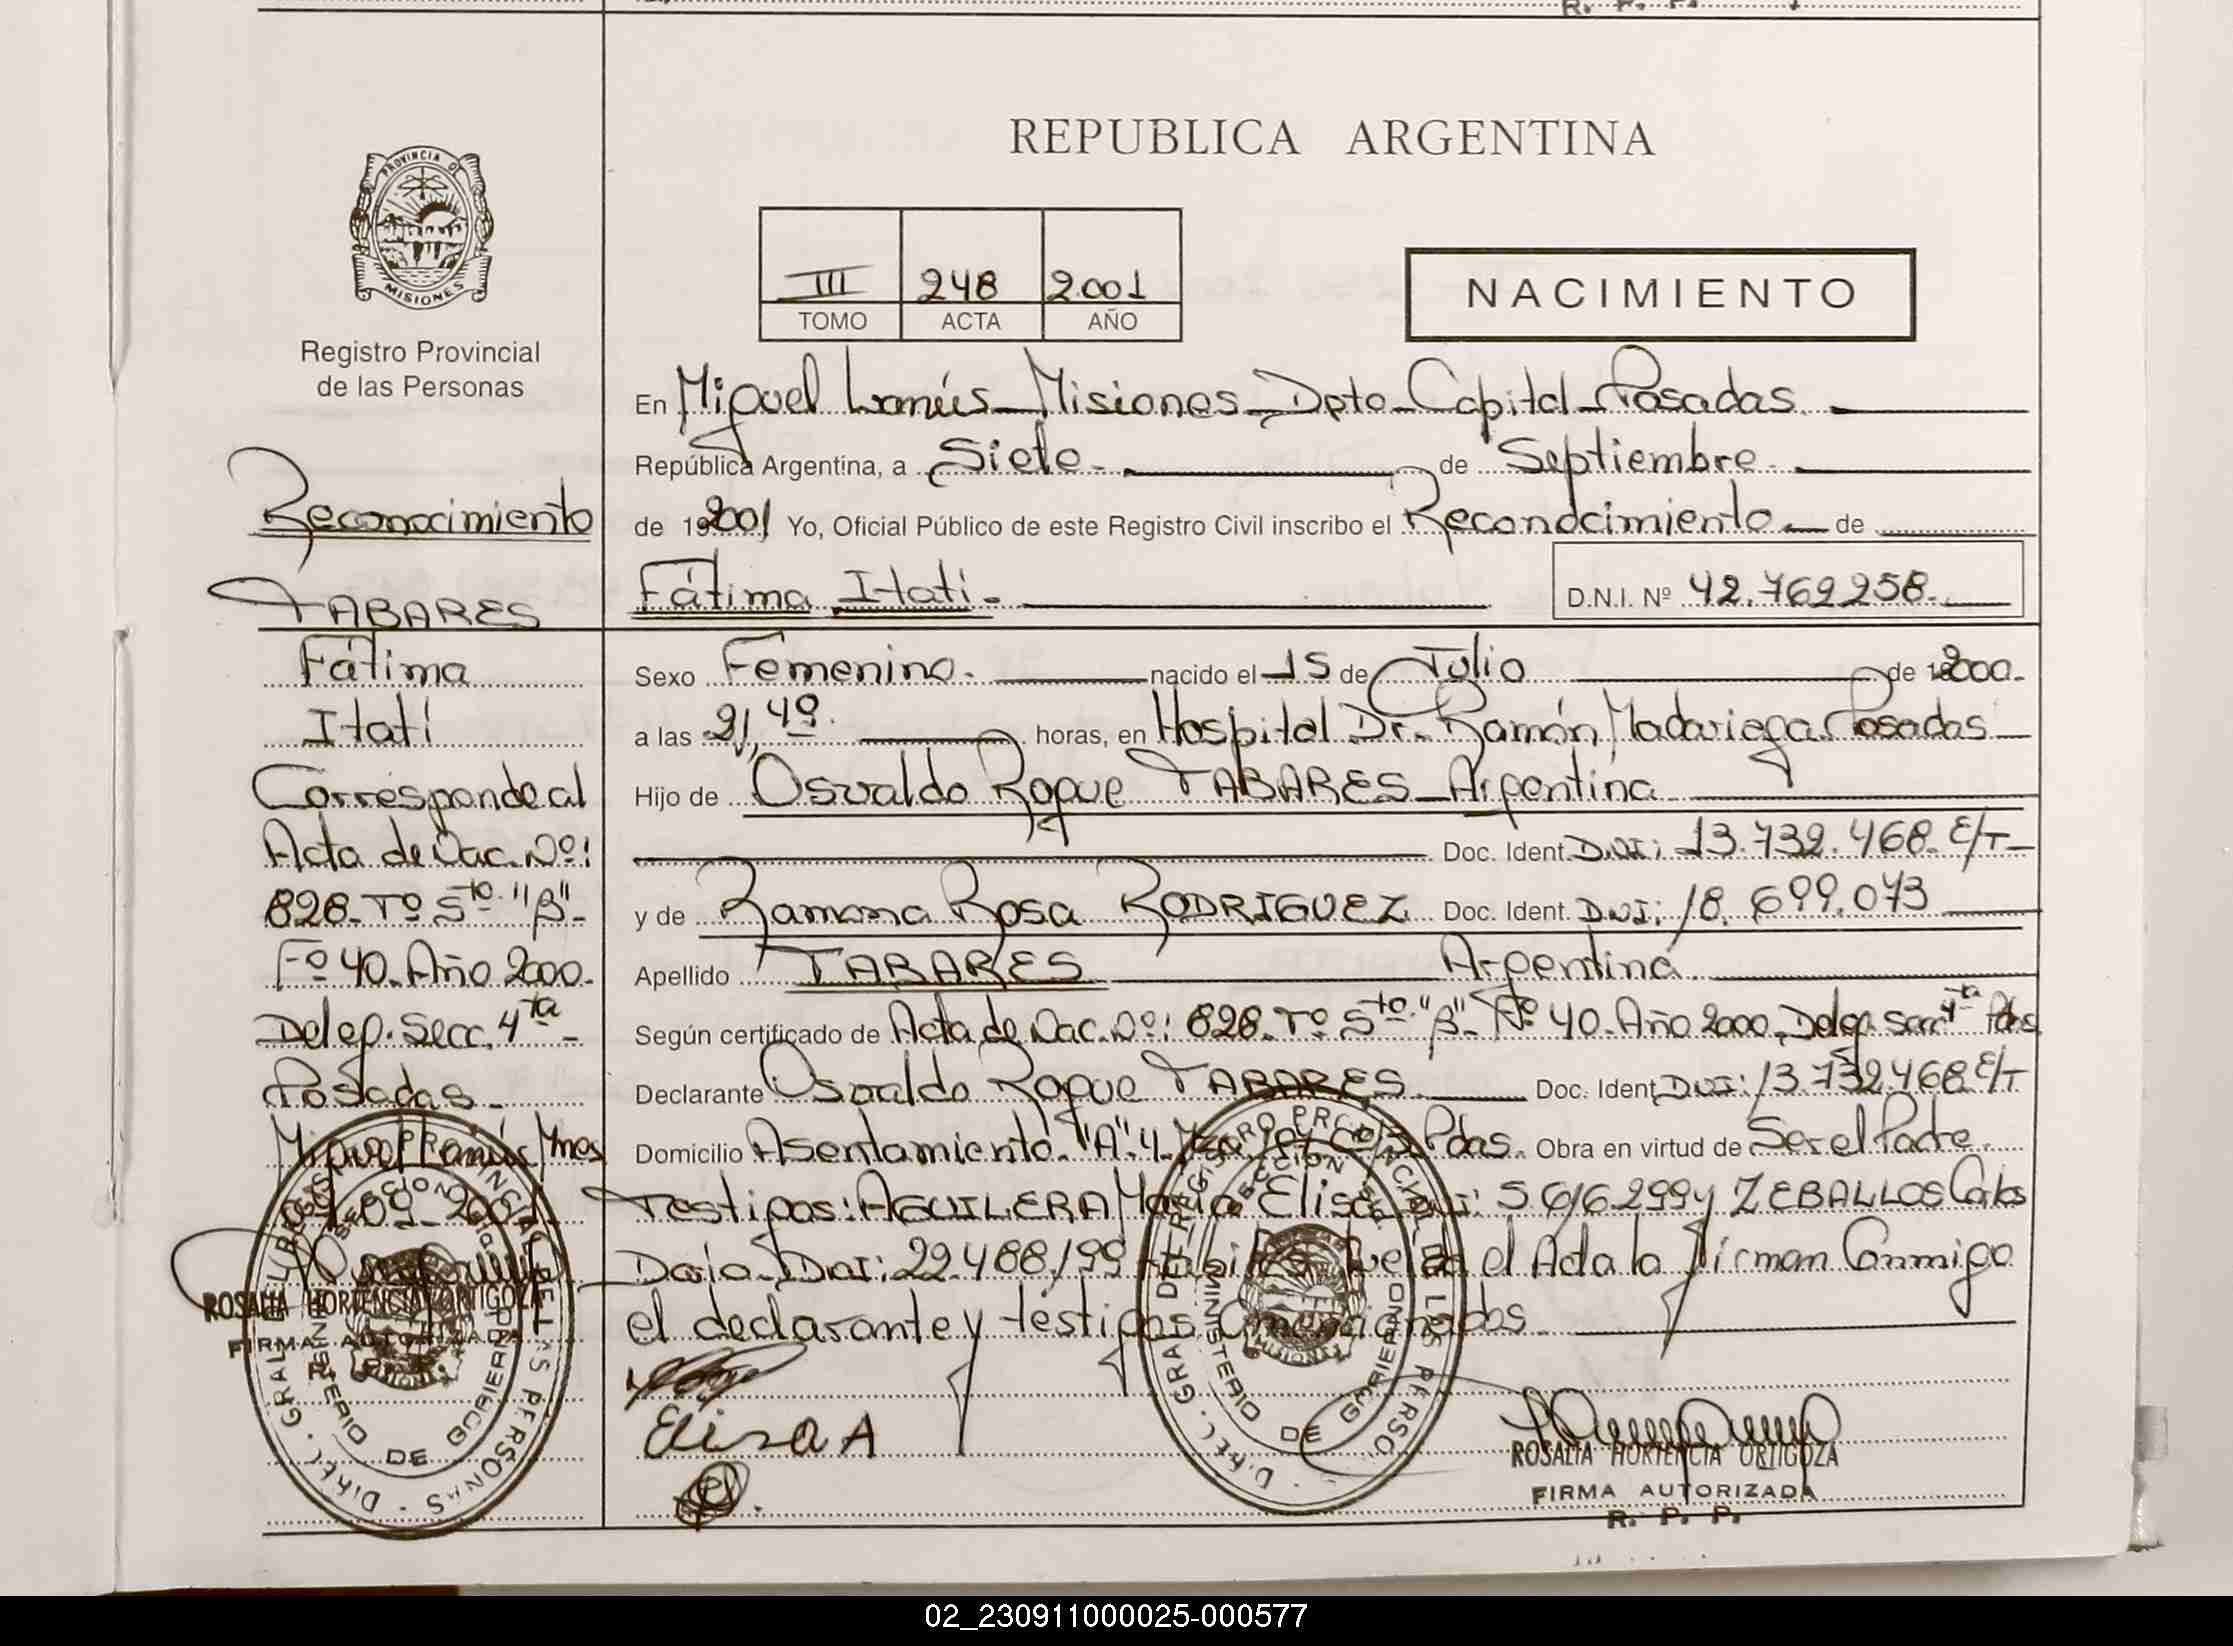 REPUBLICA ARGENTINA
PROVINCIA DE
MISIONES
Registro Provincial
de las Personas
III 248 2.001
TOMO ACTA AÑO
NACIMIENTO
Reconocimiento
TABARES
Fátima
Itatí
Corresponde al
Acta de Nac. Nº:
828. Tº 5to. "B"-
Fº 40. Año 2000.
Deleg. Secc. 4ta -
Posadas -
Miguel Lanús Mnes
09 2001
ROSALIA HORTENCIA ORTIGOZA
FIRMA AUTORIZADA
R. P. P.
En Miguel Lanús - Misiones - Dpto - Capital - Posadas.
República Argentina, a Siete. de Septiembre.
de 19 2001 Yo, Oficial Público de este Registro Civil inscribo el Reconocimiento de
Fátima Itatí. D.N.I. Nº 42.762.258.
Sexo Femenino. nacido el 15 de Julio de 19 2000.
a las 21,40. horas, en Hospital Dr. Ramón Madariaga. Posadas
Hijo de Osvaldo Roque TABARES - Argentina
Doc. Ident. DNI: 13.732.468. E/T
y de Ramona Rosa RODRIGUEZ Doc. Ident. DNI: 18.699.073
Apellido TABARES Argentina
Según certificado de Acta de Nac. Nº: 828. Tº 5to. "B" - Fº 40. Año 2000. Deleg. Secc 4ta Pdas
Declarante Osvaldo Roque TABARES Doc. Ident. DNI: 13.732.468 E/T
Domicilio Asentamiento "A" 4 Pdas. Obra en virtud de Ser el Padre.
Testigos: AGUILERA María Elisa DNI: 5.616.299 y ZEBALLOS Carlos
Darío. DNI: 22.488.199 el Acta la firman Conmigo
el declarante y testigos
Elisa A
DIREC. GRAL. REGISTRO PROVINCIAL DE LAS PERSONAS
MINISTERIO DE GOBIERNO
ROSALIA HORTENCIA ORTIGOZA
FIRMA AUTORIZADA
R. P. P.
02_230911000025-000577